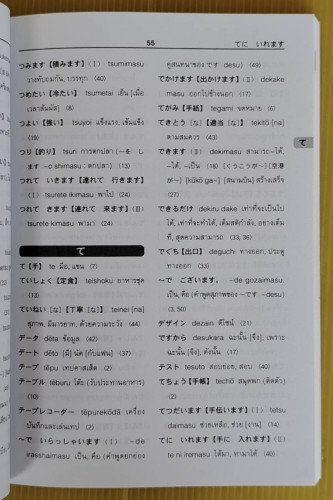 55
てに いれます
つみます【積みます】(Ⅰ) tsumimasu
วางทับถมกัน, บรรทุก (40)
つめたい【冷たい】 tsumetai เย็น [เมื่อ
เวลาสัมผัส] (8)
つよい【強い】 tsuyoi แข็งแรง, เข้มแข็ง
(19)
つり【釣り】 tsuri การตกปลา (～を し
ます -o shimasu : ตกปลา) (13)
つれて いきます【連れて 行きます】
(Ⅰ) tsurete ikimasu พาไป (24)
つれて きます【連れて 来ます】(Ⅲ)
tsurete kimasu พามา (24)
て
て【手】 te มือ, แขน (7)
ていしょく【定食】 teishoku อาหารชุด
(13)
ていねい [な]【丁寧 [な]】 teinei [na]
สุภาพ, มีมารยาท, ด้วยความระวัง (44)
データ dēta ข้อมูล (42)
デート dēto [มี] นัด (กับแฟน) (37)
テープ tēpu เทปคาสเส็ต (2)
テーブル tēburu โต๊ะ (รับประทานอาหาร)
(10)
テープレコーダー tēpurekōdā เครื่อง
บันทึกและเล่นเทป (2)
～で いらっしゃいます (Ⅰ) -de
irasshaimasu เป็น, คือ (คำพูดยกย่อง
คู่สนทนาของ です desu) (49)
でかけます【出かけます】(Ⅱ) dekake
masu ออกไปข้างนอก (17)
てがみ【手紙】 tegami จดหมาย (6)
てきとう [な]【適当 [な]】 tekitō [na]
ตามสมควร (43)
できます (Ⅱ) dekimasu สามารถ~ได้,
~ได้, ~เป็น (18) [くうこうが～]【空港
が～】 [kūkō ga~] [สนามบิน] สร้างเสร็จ
(27)
できるだけ dekiru dake เท่าที่จะเป็นไป
ได้, เท่าที่จะทำได้, เต็มสติกำลัง, อย่างเต็ม
ที่, สุดความสามารถ (33, 36)
でぐち【出口】 deguchi ทางออก, ประตู
ทางออก (33)
～で ございます。 -de gozaimasu.
เป็น, คือ (คำพูดสุภาพของ ～です -desu)
(3, 50)
デザイン dezain ดีไซน์ (21)
ですから desukara ฉะนั้น [จึง], เพราะ
ฉะนั้น [จึง], ดังนั้น (17)
テスト tesuto สอบย่อย, สอบ (40)
てちょう【手帳】 techō สมุดพก (ติดตัว)
(2)
てつだいます【手伝います】(Ⅰ) tetsu
daimasu ช่วยเหลือ, ช่วย [งาน] (14)
てに いれます【手に 入れます】(Ⅱ)
te ni iremasu ได้มา, หามาได้ (40)
て